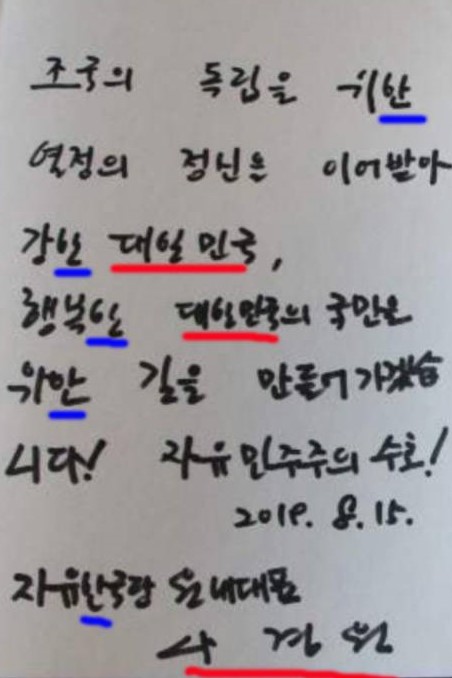 조국의 독립을 위한
열정의 정신을 이어받아
강한 대일민국,
행복한 대한민국의 국민을
위한 길을 만들어가겠습
니다! 자유민주주의 수호!
2019. 8. 15.
자유한국당 원내대표
나경원